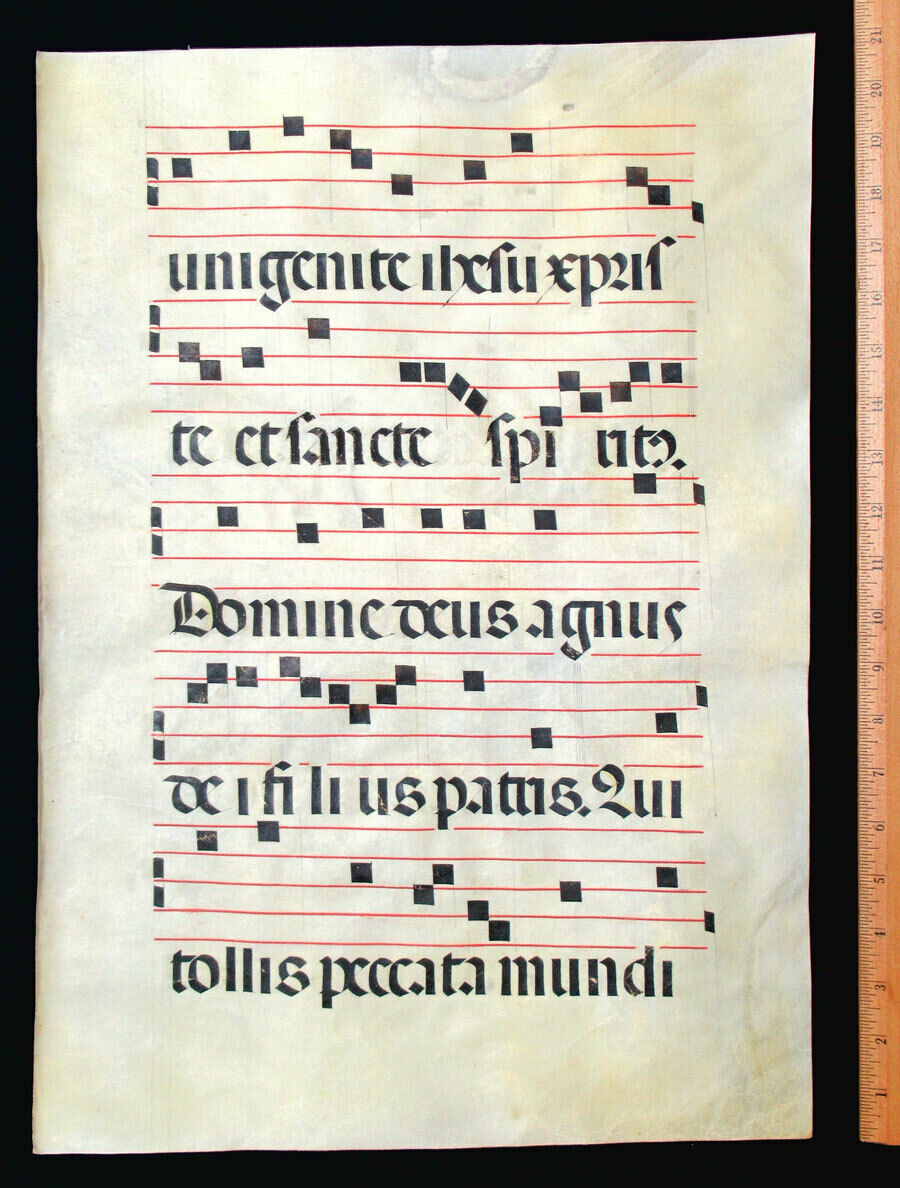 unigenite ihesu xpris
te et sancte spi ritꝰ.
Domine deus agnus
de i fi li us patris. Qui
tollis peccata mundi
21
20
19
18
17
16
15
14
13
12
11
10
9
8
7
6
5
4
3
2
1